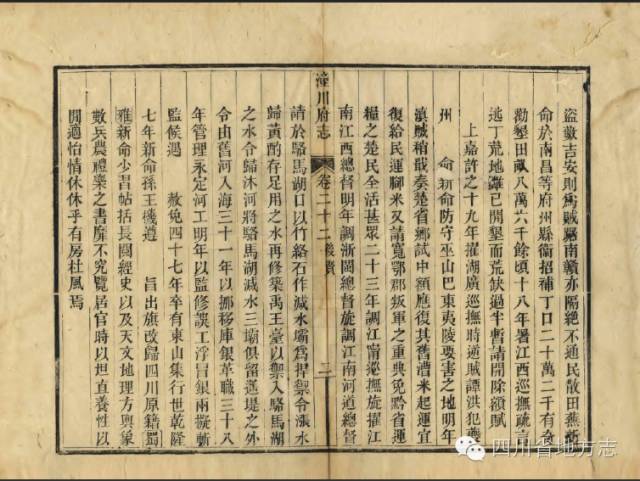 盜數吉安則為賊屠南贛亦隔絕不通民散田蕪新
命於南昌等府州縣衞招補丁口二十萬二千有奇
勸墾田畝八萬六千餘頃十八年署江西巡撫疏言
逃丁荒地雖已開墾而荒缺過半暫請開除額賦
上嘉許之十九年擢湖廣巡撫時逆賊譚洪犯夔
州　命新命防守巫山巴東夷陵要害之地明年
滇賊稍戢奏楚省鄉試中額應復其舊漕米起運宜
復給民運腳米又請寬鄂郡叛軍之重典免黔省運
糧之楚民全活甚眾二十三年調江甯巡撫旋擢江
南江西總督明年調浙閩總督旋調江南河道總督
潼川府志　卷二十二　　二
請於駱馬湖口以竹絡石作減水壩為捍禦令漲水
歸黃酌存足用之水再修築禹王臺以禦入駱馬湖
之水令歸沐河將駱馬湖減水三壩俱留遙堤之外
令由舊河入海三十一年以挪移庫銀革職三十八
年管理永定河工明年以監修誤工浮冒銀兩擬斬
監候遇　赦免四十七年卒有東山集行世乾隆
七年新命孫王機遵　旨出旗改歸四川原籍蜀
雅新命少習帖括長閱經史以及天文地理方輿象
數兵農禮樂之書靡不究覽居官時以坦直養性以
閒適怡情休休乎有房杜風焉
四川省地方志